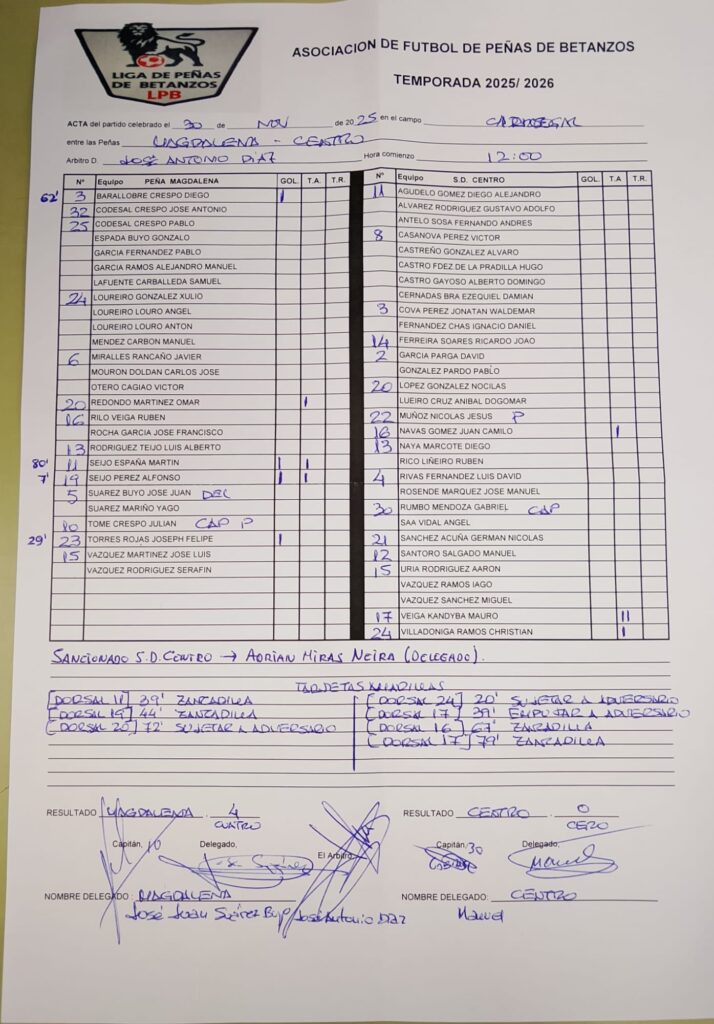 LIGA DE PEÑAS
DE BETANZOS
LPB
ASOCIACION DE FUTBOL DE PEÑAS DE BETANZOS
TEMPORADA 2025/ 2026
ACTA del partido celebrado el 30 de NOV de 2025 en el campo CARREGAL
entre las Peñas MAGDALENA - CENTRO
Arbitro D. JOSÉ ANTONIO DÍAZ Hora comienzo 12:00
Nº Equipo PEÑA MAGDALENA GOL. T.A. T.R.
62' 3 BARALLOBRE CRESPO DIEGO I
32 CODESAL CRESPO JOSE ANTONIO
25 CODESAL CRESPO PABLO
ESPADA BUYO GONZALO
GARCIA FERNANDEZ PABLO
GARCIA RAMOS ALEJANDRO MANUEL
LAFUENTE CARBALLEDA SAMUEL
24 LOUREIRO GONZALEZ XULIO
LOUREIRO LOURO ANGEL
LOUREIRO LOURO ANTON
MENDEZ CARBON MANUEL
6 MIRALLES RANCAÑO JAVIER
MOURON DOLDAN CARLOS JOSE
OTERO CAGIAO VICTOR
20 REDONDO MARTINEZ OMAR I
16 RILO VEIGA RUBEN
ROCHA GARCIA JOSE FRANCISCO
13 RODRIGUEZ TEIJO LUIS ALBERTO
80' 11 SEIJO ESPAÑA MARTIN I I
7' 19 SEIJO PEREZ ALFONSO I I
5 SUAREZ BUYO JOSE JUAN DEL
SUAREZ MARIÑO YAGO
10 TOME CRESPO JULIAN CAP P
29' 23 TORRES ROJAS JOSEPH FELIPE I
15 VAZQUEZ MARTINEZ JOSE LUIS
VAZQUEZ RODRIGUEZ SERAFIN
Nº Equipo S.D. CENTRO GOL. T.A T.R.
11 AGUDELO GOMEZ DIEGO ALEJANDRO
ALVAREZ RODRIGUEZ GUSTAVO ADOLFO
ANTELO SOSA FERNANDO ANDRES
8 CASANOVA PEREZ VICTOR
CASTREÑO GONZALEZ ALVARO
CASTRO FDEZ DE LA PRADILLA HUGO
CASTRO GAYOSO ALBERTO DOMINGO
CERNADAS BRA EZEQUIEL DAMIAN
3 COVA PEREZ JONATAN WALDEMAR
FERNANDEZ CHAS IGNACIO DANIEL
14 FERREIRA SOARES RICARDO JOAO
2 GARCIA PARGA DAVID
GONZALEZ PARDO PABLO
20 LOPEZ GONZALEZ NOCILAS
LUEIRO CRUZ ANIBAL DOGOMAR
22 MUÑOZ NICOLAS JESUS P
16 NAVAS GOMEZ JUAN CAMILO I
13 NAYA MARCOTE DIEGO
RICO LIÑEIRO RUBEN
4 RIVAS FERNANDEZ LUIS DAVID
ROSENDE MARQUEZ JOSE MANUEL
30 RUMBO MENDOZA GABRIEL CAP
SAA VIDAL ANGEL
21 SANCHEZ ACUÑA GERMAN NICOLAS
12 SANTORO SALGADO MANUEL
15 URIA RODRIGUEZ AARON
VAZQUEZ RAMOS IAGO
VAZQUEZ SANCHEZ MIGUEL
17 VEIGA KANDYBA MAURO II
24 VILLADONIGA RAMOS CHRISTIAN I
SANCIONADO S.D. CENTRO → ADRIAN MIRAS NEIRA (DELEGADO).
TARJETAS AMARILLAS
[DORSAL 11] 39' ZANCADILLA
[DORSAL 19] 44' ZANCADILLA
[DORSAL 20] 72' SUJETAR A ADVERSARIO
[DORSAL 24] 20' SUJETAR A ADVERSARIO
[DORSAL 17] 39' EMPUJAR A ADVERSARIO
[DORSAL 16] 67' ZANCADILLA
[DORSAL 17] 79' ZANCADILLA
RESULTADO MAGDALENA . 4 RESULTADO CENTRO . 0
CUATRO CERO
Capitán, 10 Delegado, El Arbitro, Capitán, 30 Delegado,
NOMBRE DELEGADO: MAGDALENA NOMBRE DELEGADO: CENTRO
José Juan Suárez Buyo José Antonio Díaz Manuel